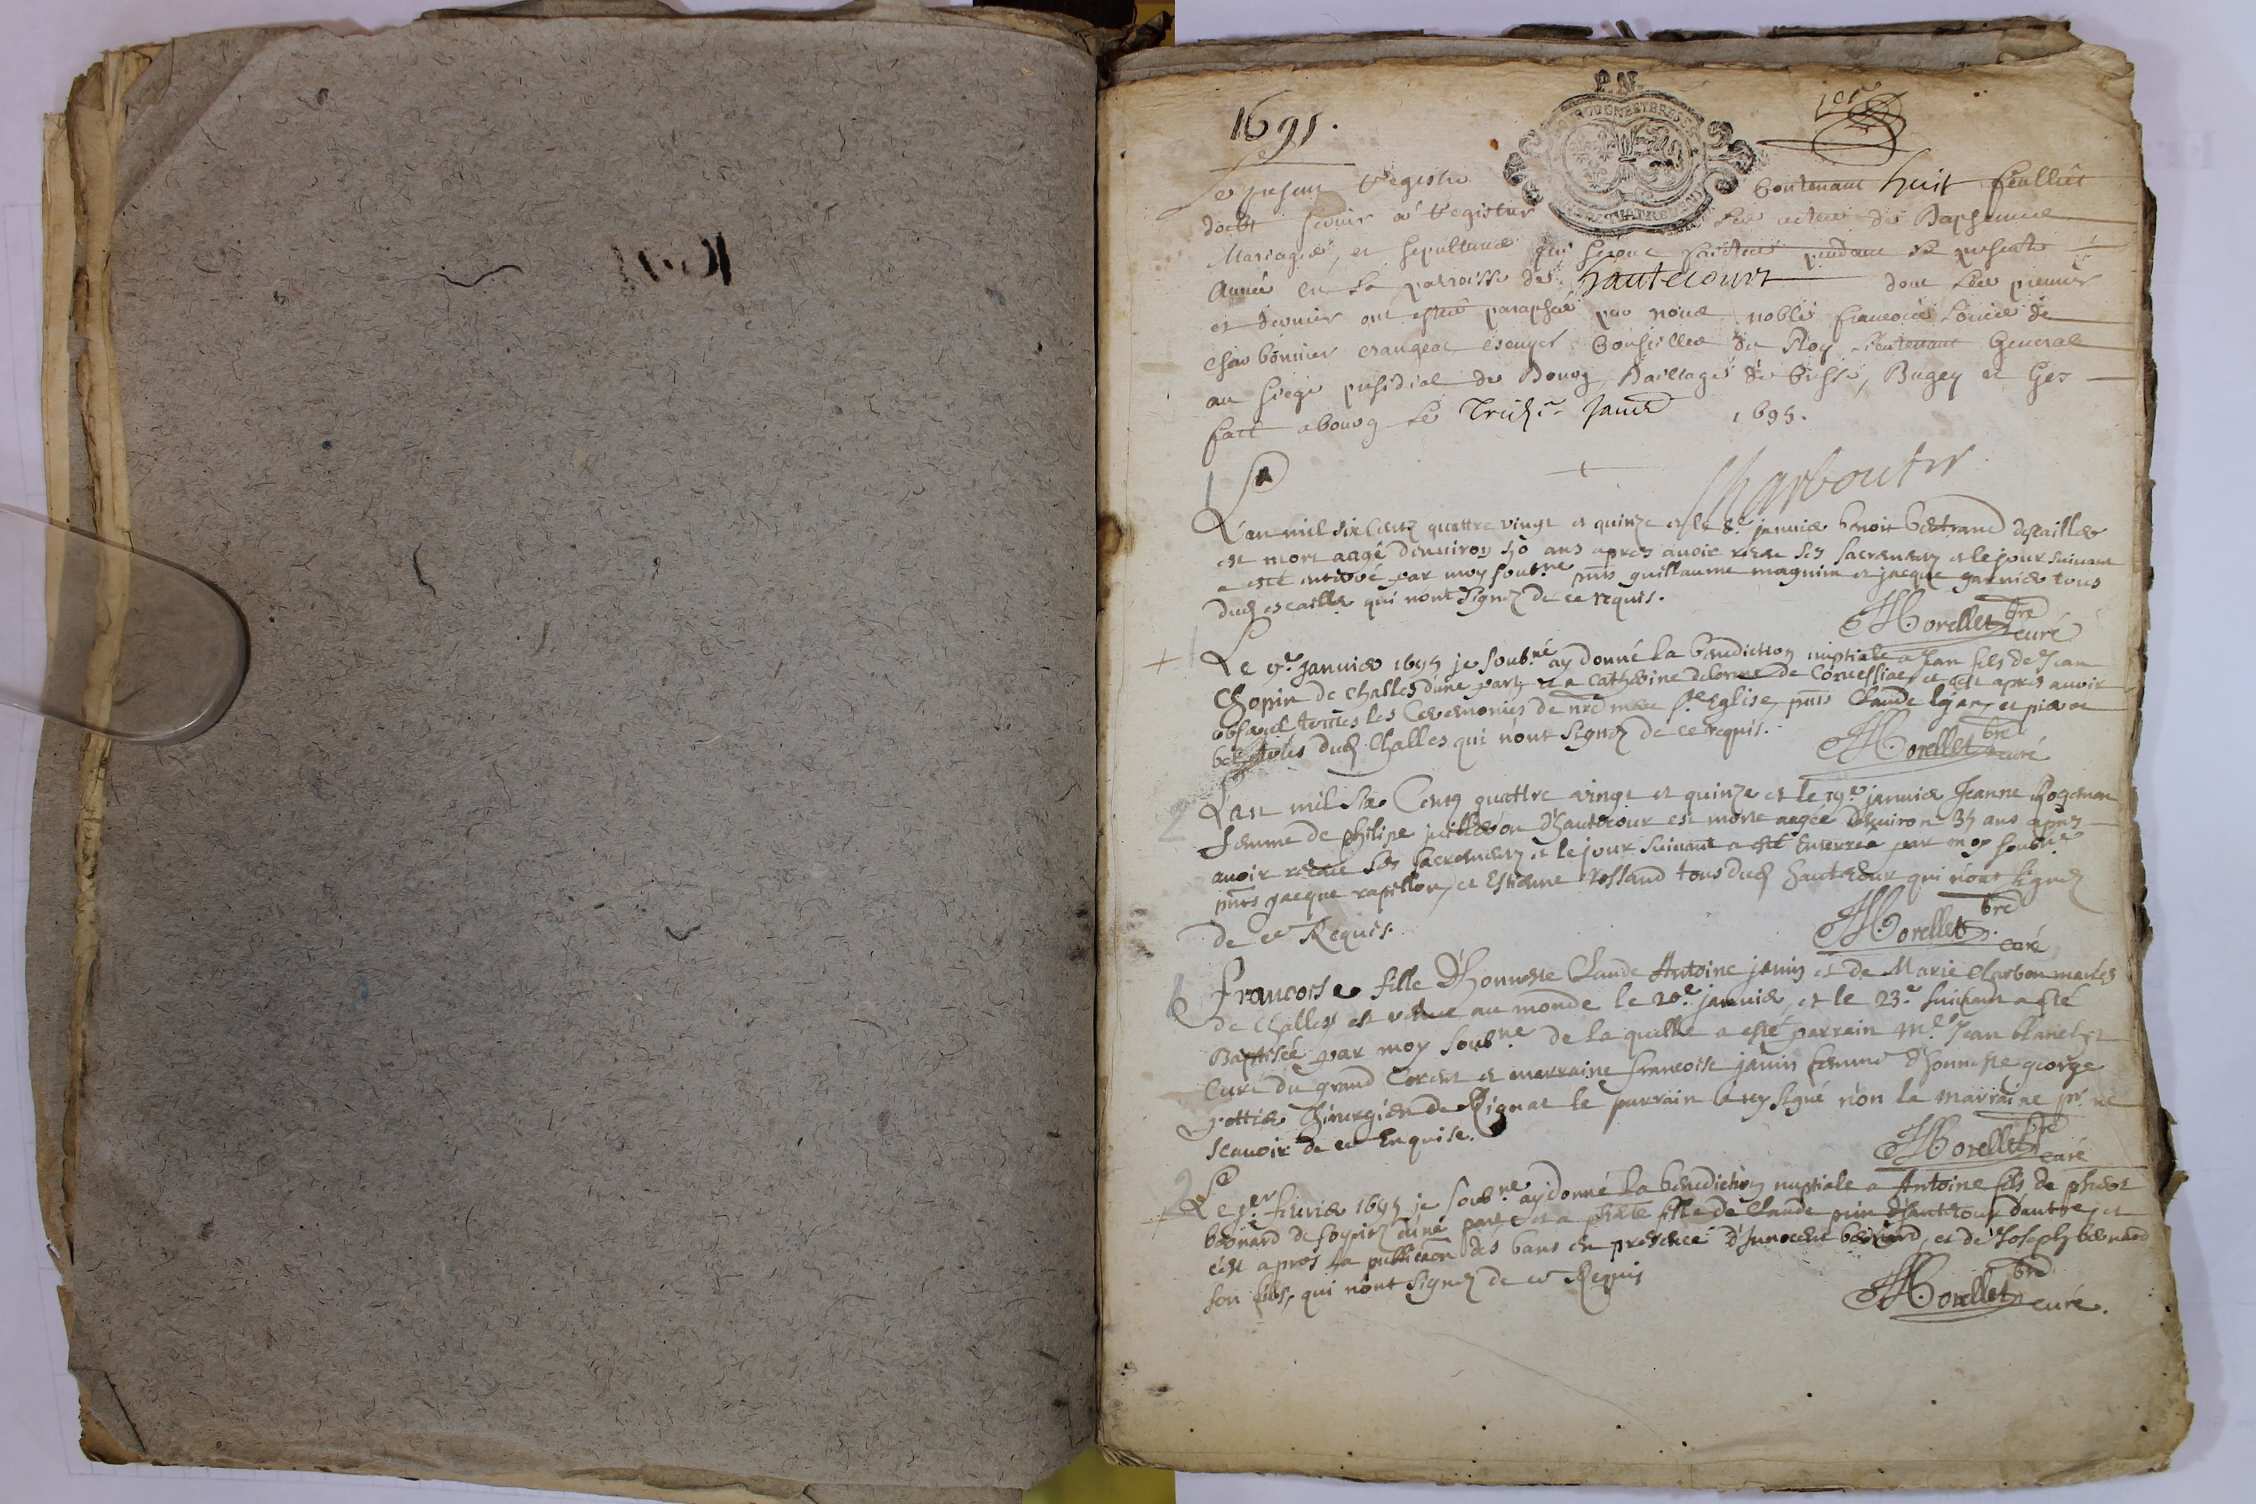 1695.
Le present Registre contenant huit feullets
doibt servir a Registrer les actes de Baptesmes
Mariages, et sepultures qui seront faictes pendant la presente
Année en la parroisse de hautecourt dont les premier
et dernier ont esté paraphés par nous noble francois Louis de
charbonnier crangeac escuyer Conseiller du Roy Lieutenant General
au siege presidial de Bourg Bailliage de bresse, Bugey et Gex
fait a bourg le Janr 1695.
Charbonnier
L'an mil six Cents quattre vingt et quinze et le 8.e janvier benoit bertrand descailles
est mort aagé d'environ 50 ans apres avoir receu ses sacrements et le jour suivant
a esté enterré par moy soubné pnts guillaume magnin et jacque garnier tous
dud escailles qui nont signez de ce requis.
H Morellet bre curé
Le janvier 1695 je soubné ay donné la benediction nuptiale a Jean fils de Jean
Chopin de challes d'une part et a Catherine delorme de Concessiae et cest apres avoir
observé toutes les Ceremonies de nre mere ste Eglise, pnts Claude et pierre
dud Challes qui n'ont signez de ce requis.
H Morellet bre curé
L'an mil six Cents quattre vingt et quinze et le 19.e janvier Jeanne
femme de philipe d'hautecour est morte aagée d'environ 35 ans apres
avoir receu ses sacrements et le jour suivant a esté Enterrée par moy soubné
pnts jacque rapillon, et Estienne rossand tous dud hautecour qui nont signez
de ce Requis.
H Morellet bre curé
francoise fille d'honneste Claude Antoine janin et de Marie Charbon mariés
de challes est venue au monde le 20.e janvier, et le 23.e suivant a esté
Baptisée par moy soubné de laquelle a esté parrain Mre Jean blanchet
Curé du grand Corent et marraine francoise janin femme d'honneste george
Chirurgien de Rignat le parrain signé non la marraine pr ne
scavoir de ce Enquise.
H Morellet bre curé
Le fevrier 1695 je soubné ay donné la benediction nuptiale a Antoine fils de
bernard d'une part et a fille de Claude d'hautecour d'autre, et
c'est apres la publication des bans en presence d'Innocent bernard, et de Joseph bernard
son fils, qui n'ont signez de ce Requis
H Morellet bre curé.